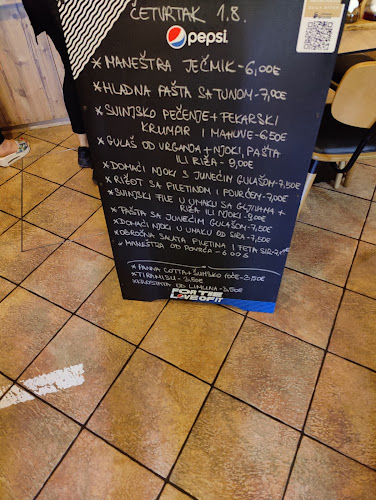 ČETVRTAK 1.8.
pepsi
* MANEŠTRA JEČMIK - 6,00€
* HLADNA PAŠTA SA TUNOM - 7,00€
* SVINJSKO PEČENJE + PEKARSKI
KRUMPIR I MAHUNE - 6.50€
* GULAŠ OD VRGANJA + NJOKI, PAŠTA
ILI RIŽA - 9,00€
* DOMAĆI NJOKI S JUNEĆIM GULAŠOM - 7,50€
* RIŽOT SA PILETINOM I POVRĆEM - 7,00€
* SVINJSKI FILE U UMAKU SA GLJIVAMA +
RIŽA ILI NJOKI - 9,00€
* PAŠTA SA JUNEĆIM GULAŠOM - 7,50€
* DOMAĆI NJOKI U UMAKU OD SIRA - 7,50€
* OBROČNA SALATA PILETINA I FETA SIR -
* MANEŠTRA OD POVRĆA - 6 00$
* PANNA COTTA + ŠUMSKO VOĆE - 3,50€
* TIRAMISU - 3,50€
KEROSTATA OD LIMUNA - 3,50€
FOR THE
LOVE OF IT